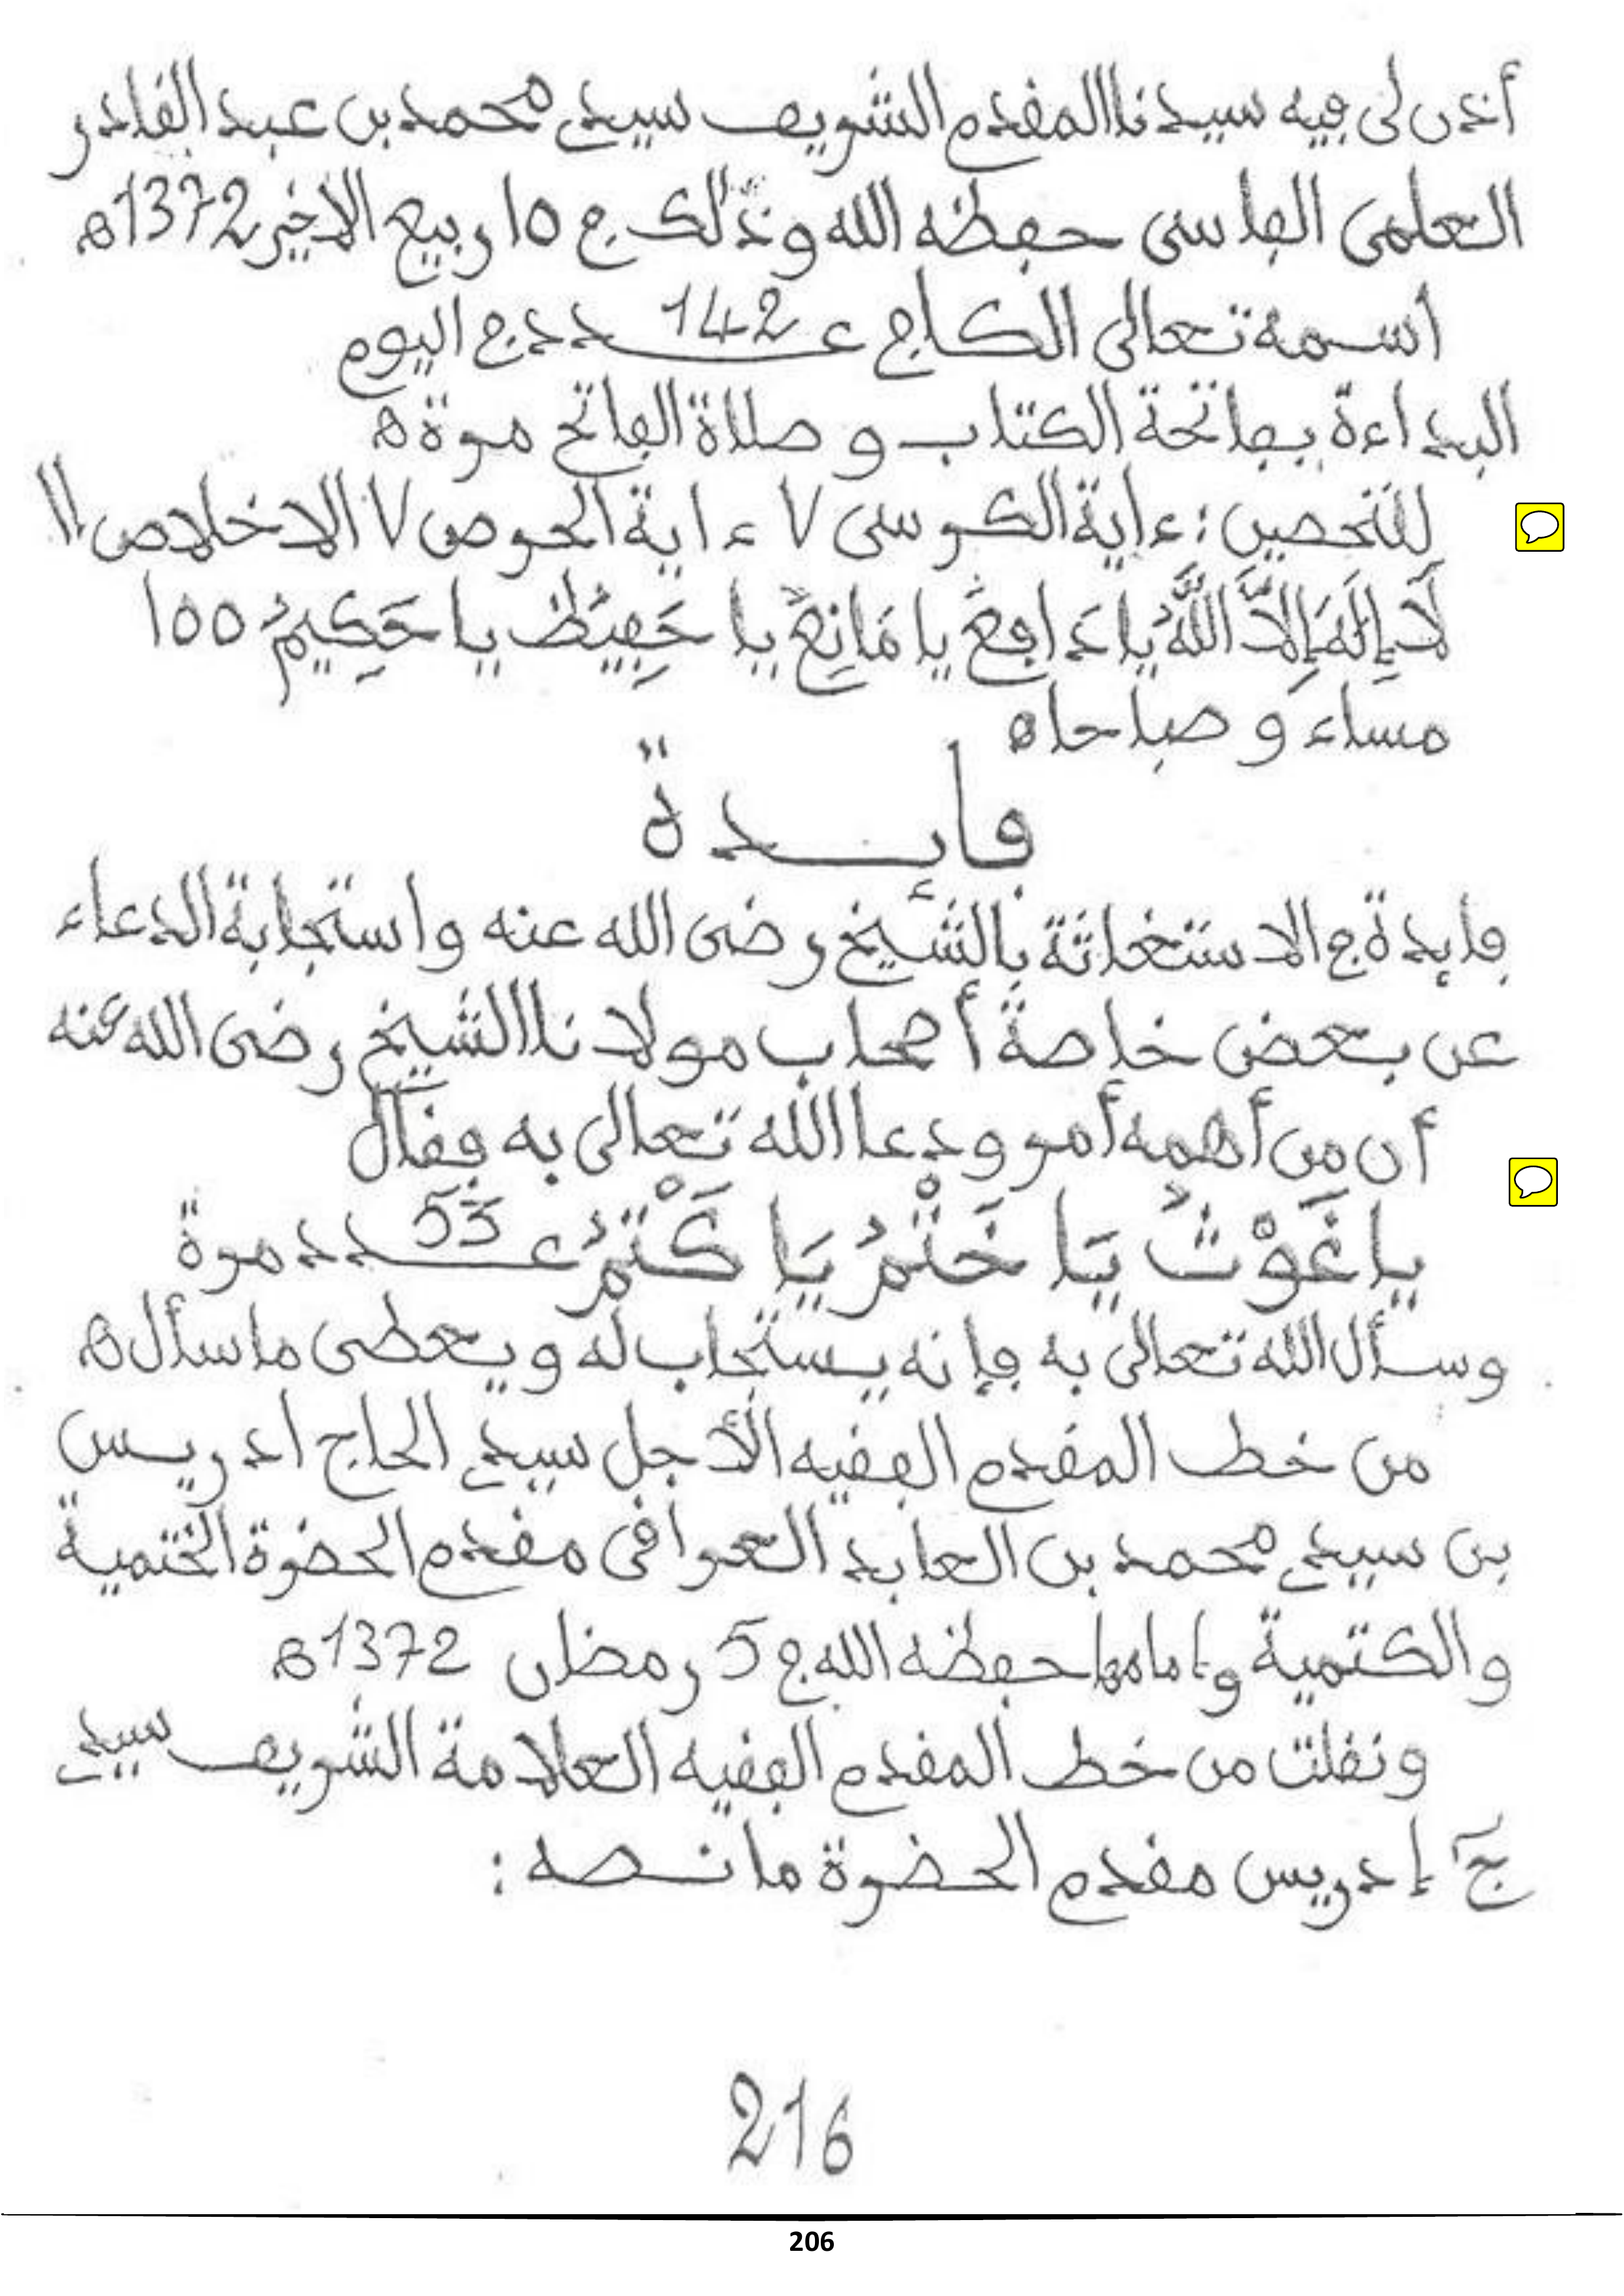 أذن لى فيه سيدنا المقدم الشريف سيدي محمد بن عبد القادر
العلمى الفاسى حفظه الله وذلك في 10 ربيع الاخير 1372ه
اسمه تعالى الكافي عــدد 142 في اليوم
البداءة بفاتحة الكتاب و صلاة الفاتح مرة ه
للتحصين : ءاية الكرسى 7 ءاية الحرص 7 الاخلاص 11
لَا إِلَهَ إِلَّا اللَّهُ يا دَافِعُ يا مَانِعُ يا حَفِيظُ يا حَكِيمُ 100
مساء و صباحا ه
فايــدة
فايدة في الاستغاثة بالشيخ رضى الله عنه واستجابة الدعاء
عن بعض خاصة أصحاب مولانا الشيخ رضى الله عنه
أن من أهمه أمر ودعا الله تعالى به فقال
يا غَوْثُ يَا خَتْمُ يَا كَتْمُ عــدد 53 مرة
وسأل الله تعالى به فإنه يستجاب له ويعطى ما سأل ه
من خط المقدم الفقيه الأجل سيدي الحاج ادريس
بن سيدي محمد بن العابد العراقى مقدم الحضرة الختمية
والكتمية وإمامها حفظه الله في 5 رمضان 1372 ه
ونقلت من خط المقدم الفقيه العلامة الشريف سيدي
ج إدريس مقدم الحضرة ما نصه :
216
206